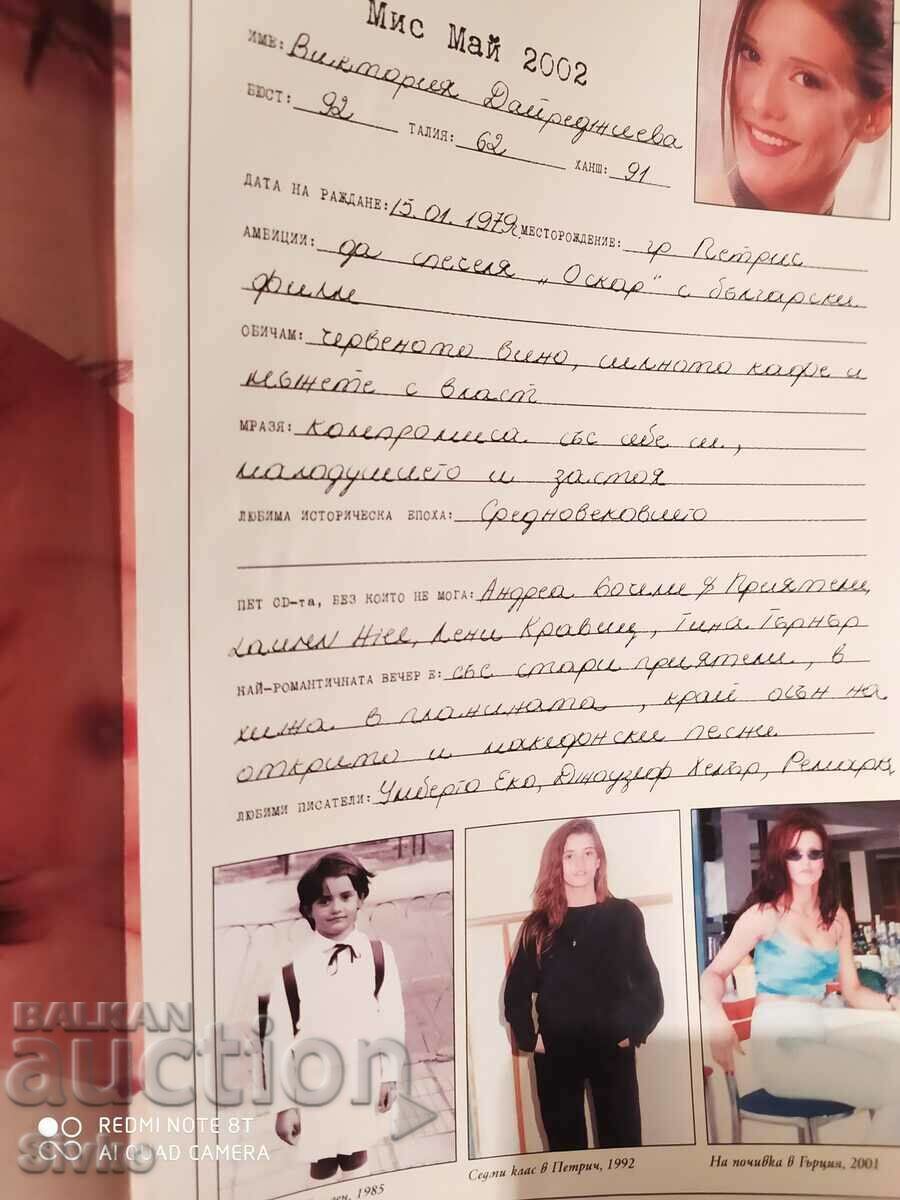 Мис Май 2002
ИМЕ: Виктория Дайреджиева
БЮСТ: 92 ТАЛИЯ: 62 ХАНШ: 91
ДАТА НА РАЖДАНЕ: 15.01.1979г МЕСТОРОЖДЕНИЕ: гр Петрич
АМБИЦИИ: да спечеля „Оскар" с български
филм
ОБИЧАМ: червеното вино, силното кафе и
мъжете с власт
МРАЗЯ: компромиса със себе си,
малодушието и застоя
ЛЮБИМА ИСТОРИЧЕСКА ЕПОХА: Средновековието
ПЕТ CD-та, БЕЗ КОИТО НЕ МОГА: Андреа Бочели & Приятели,
Lauren Hill, Лени Кравиц, Тина Търнър
НАЙ-РОМАНТИЧНАТА ВЕЧЕР Е: със стари приятели, в
хижа в планината, край огън на
открито и македонски песни
ЛЮБИМИ ПИСАТЕЛИ: Умберто Еко, Джоузеф Хелър, Ремарк
1985
Седми клас в Петрич, 1992
На почивка в Гърция, 2001
BALKAN
auction
REDMI NOTE 8T
AI QUAD CAMERA
Sivko